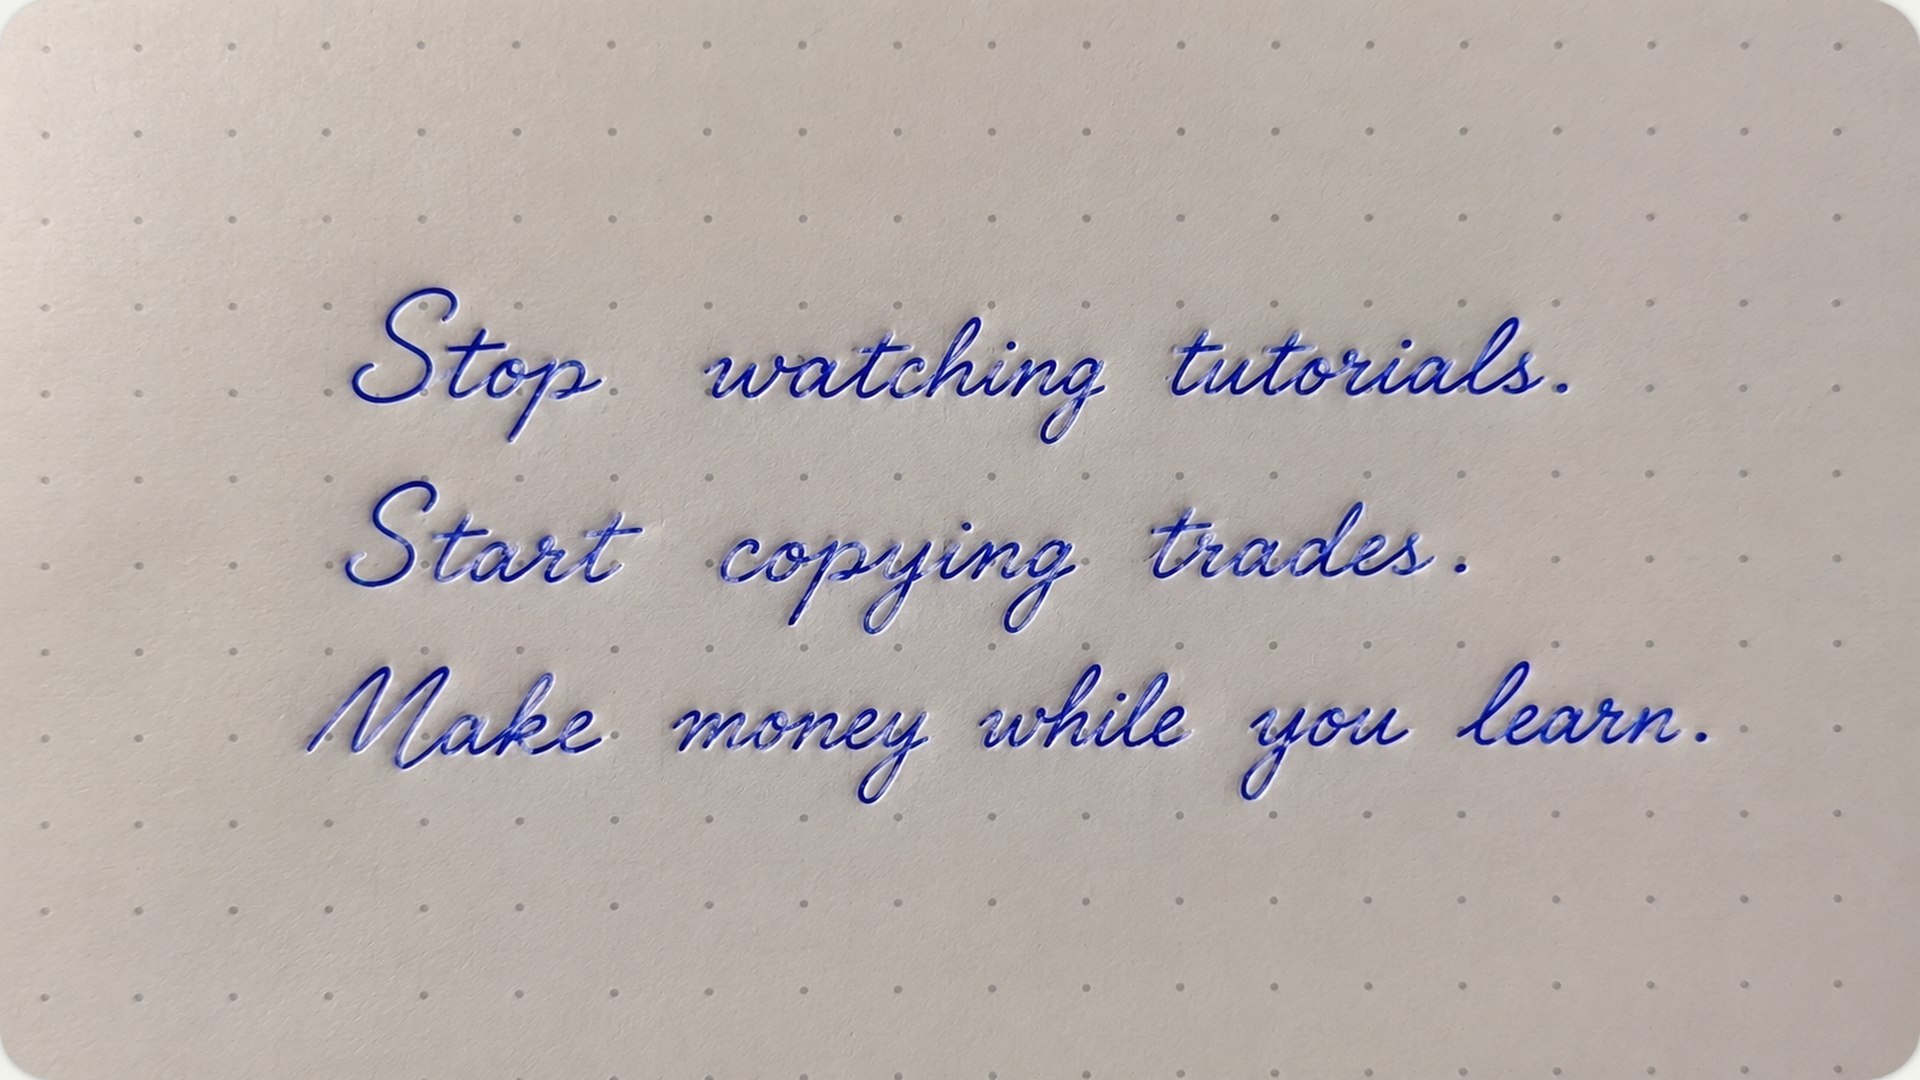 Stop watching tutorials.
Start copying trades.
Make money while you learn.